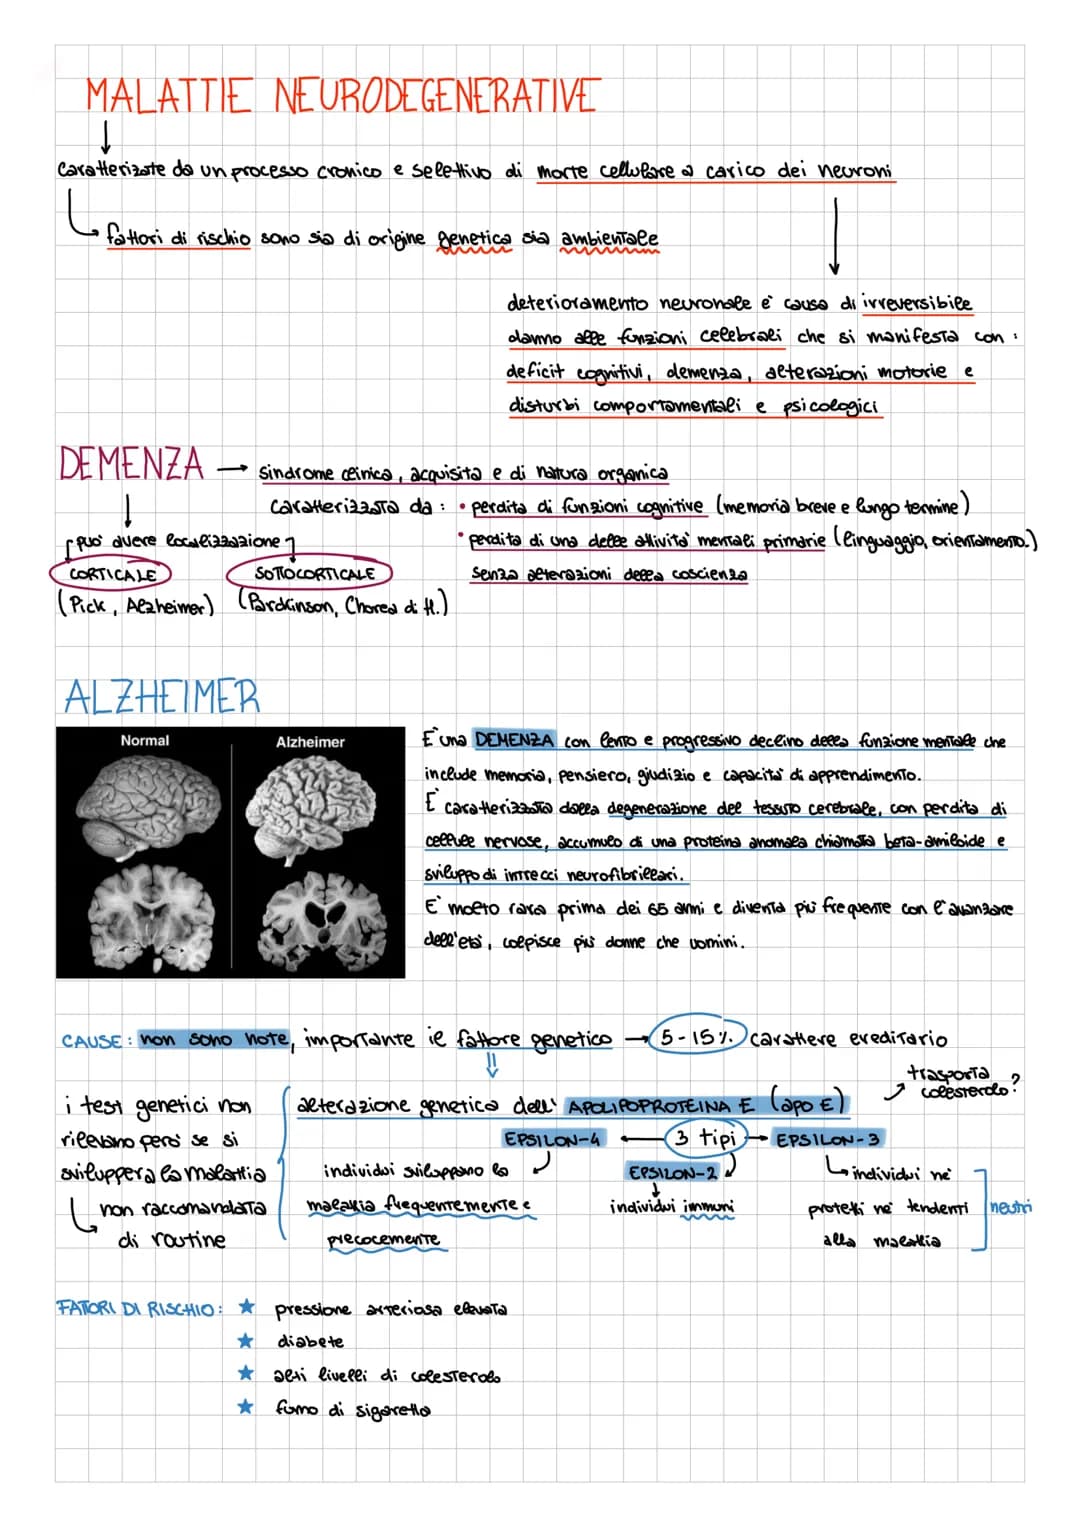 MALATTIE NEURODEGENERATIVE
Caratterizzate da un processo cronico e selettivo di morte cellulare a carico dei neuroni
fattori di rischio sono sia di origine genetica sia ambientale
deterioramento neuronale è causa di irreversibile
danno alle funzioni celebrali che si manifesta con :
deficit cognitivi, demenza, alterazioni motorie e
disturbi comportamentali e psicologici
DEMENZA → sindrome clinica, acquisita e di natura organica
caratterizzata da : • perdita di funzioni cognitive (memoria breve e lungo termine)
può avere localizzazione
• perdita di una delle attività mentali primarie (linguaggio, orientamento.)
CORTICALE SOTTOCORTICALE
senza alterazioni della coscienza
(Pick, Alzheimer) (Pardkinson, Chorea di H.)
ALZHEIMER
Normal Alzheimer
È una DEMENZA con lento e progressivo declino della funzione mentale che
include memoria, pensiero, giudizio e capacità di apprendimento.
È caratterizzata dalla degenerazione del tessuto cerebrale, con perdita di
cellule nervose, accumulo di una proteina anomala chiamata beta-amiloide e
sviluppo di intrecci neurofibrillari.
E' molto rara prima dei 65 anni e diventa più frequente con l'avanzare
dell'età, colpisce più donne che uomini.
CAUSE : non sono note, importante il fattore genetico → 5-15% carattere ereditario
trasporta
colesterolo?
i test genetici non
rilevano però se si
svilupperà la malattia
non raccomandata
di routine
alterazione genetica dell' APOLIPOPROTEINA E (apo E)
EPSILON-4 ← 3 tipi → EPSILON-3
EPSILON-2
individui sviluppano la
malattia frequentemente e
precocemente
individui immuni
individui nè
protetti nè tendenti
alla malattia
neutri
FATTORI DI RISCHIO: ★ pressione arteriosa elevata
★ diabete
★ alti livelli di colesterolo
★ fumo di sigaretta